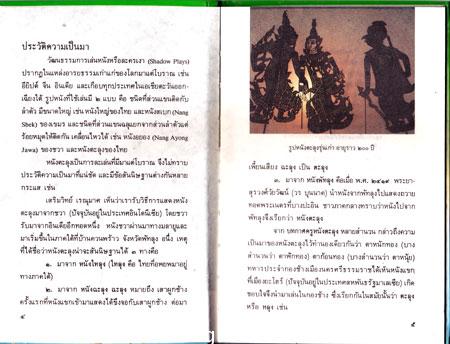 ประวัติความเป็นมา
วัฒนธรรมการเล่นหนังหรือละครเงา (Shadow Plays)
ปรากฏในแหล่งอารยธรรมเก่าแก่ของโลกมาแต่โบราณ เช่น
อียิปต์ จีน อินเดีย และเกือบทุกประเทศในเอเชียตะวันออก-
เฉียงใต้ รูปหนังที่ใช้เล่นมี ๒ แบบ คือ ชนิดที่ส่วนแขนติดกับ
ลำตัว มีขนาดใหญ่ เช่น หนังใหญ่ของไทย และหนังสเบก (Nang
Sbek) ของเขมร และชนิดที่ส่วนแขนฉลุแยกจากส่วนลำตัวแต่
ร้อยหมุดให้ติดกัน เคลื่อนไหวได้ เช่น หนังอยอง (Nang Ayong
Jawa) ของชวา และหนังตะลุงของไทย
หนังตะลุงเป็นการละเล่นที่มีมาแต่โบราณ จึงไม่ทราบ
ประวัติความเป็นมาที่แน่ชัด และมีข้อสันนิษฐานต่างกันหลาย
กระแส เช่น
เสริมวิทย์ เรณุมาศ เห็นว่าเรารับวิธีการแสดงหนัง
ตะลุงมาจากชวา (ปัจจุบันอยู่ในประเทศอินโดนีเซีย) โดยชวา
รับมาจากอินเดียอีกทอดหนึ่ง หนังชวาผ่านมาทางมลายูและ
มาเริ่มขึ้นในภาคใต้ที่บ้านควนพร้าว จังหวัดพัทลุง อนึ่ง เหตุ
ที่ได้ชื่อว่าหนังตะลุงน่าจะสันนิษฐานได้ ๓ ทางคือ
๑. มาจาก หนังไทลุง (ไทลุง คือ ไทยที่อพยพมาอยู่
ทางภาคใต้)
๒. มาจาก หนังฉะลุง ฉะลุง หมายถึง เสาผูกช้าง
ครั้งแรกที่หนังแขกเข้ามาแสดงได้ขึงจอกับเสาผูกช้าง ต่อมา
๔
รูปหนังตะลุงรุ่นเก่า อายุราว ๒๐๐ ปี
เพี้ยนเสียง ฉะลุง เป็น ตะลุง
๓. มาจาก หนังพัทลุง คือเมื่อ พ.ศ. ๒๔๑๙ พระยา-
สุรวงศ์วัยวัฒน์ (วร บุนนาค) นำหนังจากพัทลุงไปแสดงถวาย
ทอดพระเนตรที่บางปะอิน ชาวภาคกลางทราบว่าหนังไปจาก
พัทลุงจึงเรียกว่า หนังตะลุง
จาก บทกาศครูหนังตะลุง หลายสำนวน กล่าวถึงความ
เป็นมาของหนังตะลุงไว้ทำนองเดียวกันว่า ตาหนักทอง (บาง
สำนวนว่า ตาฟักทอง) ตาก้อนทอง (บางสำนวนว่า ตาหนุ้ย)
ทหารประจำกองช้างเมืองนครศรีธรรมราชได้เห็นหนังแขก
ที่เมืองยะโฮร์ (ปัจจุบันอยู่ในประเทศสหพันธรัฐมาเลเซีย) เกิด
ชอบใจจึงนำมาเล่นในกองช้าง ซึ่งเรียกกันในสมัยนั้นว่า ตะลุง
หรือ หลุง เช่น
๕